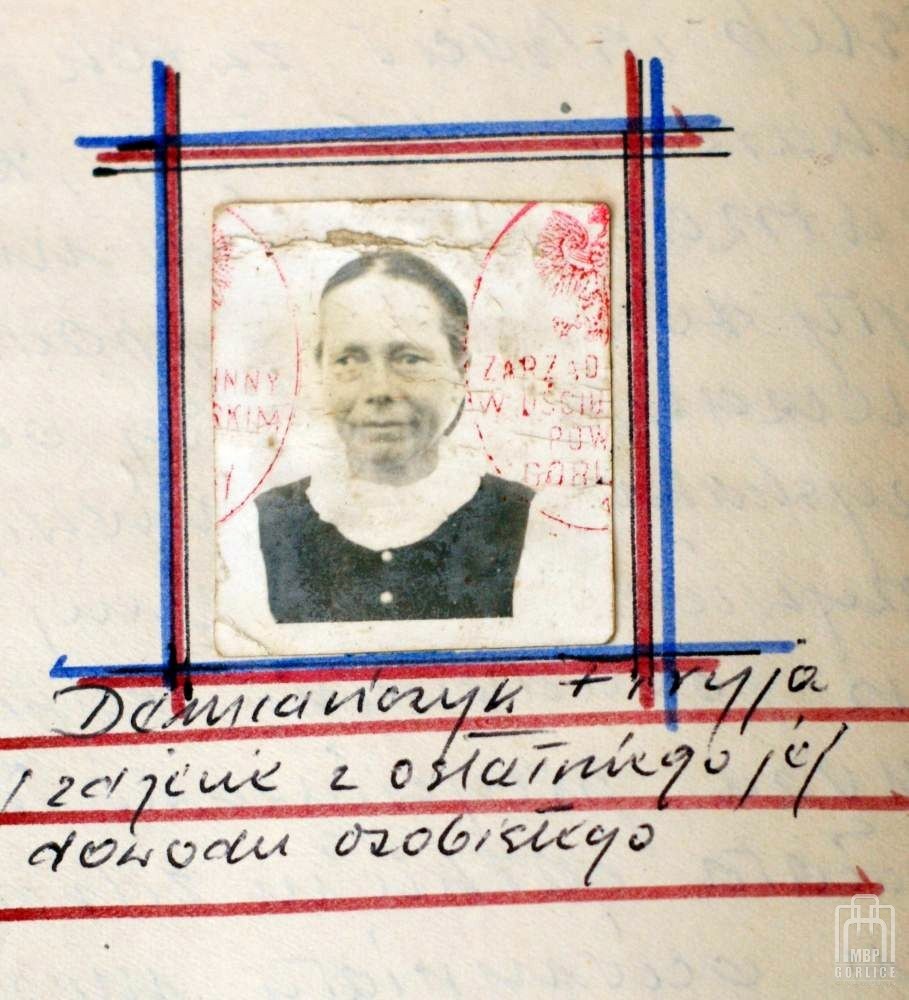 INNY
SKIM
ZARZĄD
W UŚCIU
POW
GORL
Demiańczyk
zdjęcie z ostatniego jej
dowodu osobistego
MBP
GORLICE